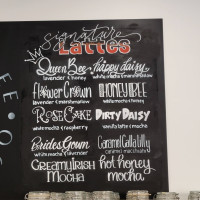 signature
LATTES
Queen Bee
lavender & honey
happy daisy
white mocha & marshmallow
Flower Crown
lavender & marshmallow
HONEY BEE
white mocha & honey
ROSE CAKE
white mocha & raspberry
DIRTY DAISY
vanilla latte & mocha
Brides Gown
white mocha & lavender
Caramel Calla Lily
caramel macchiato
CREAMY IRISH
MOCHA
hot honey
mocha